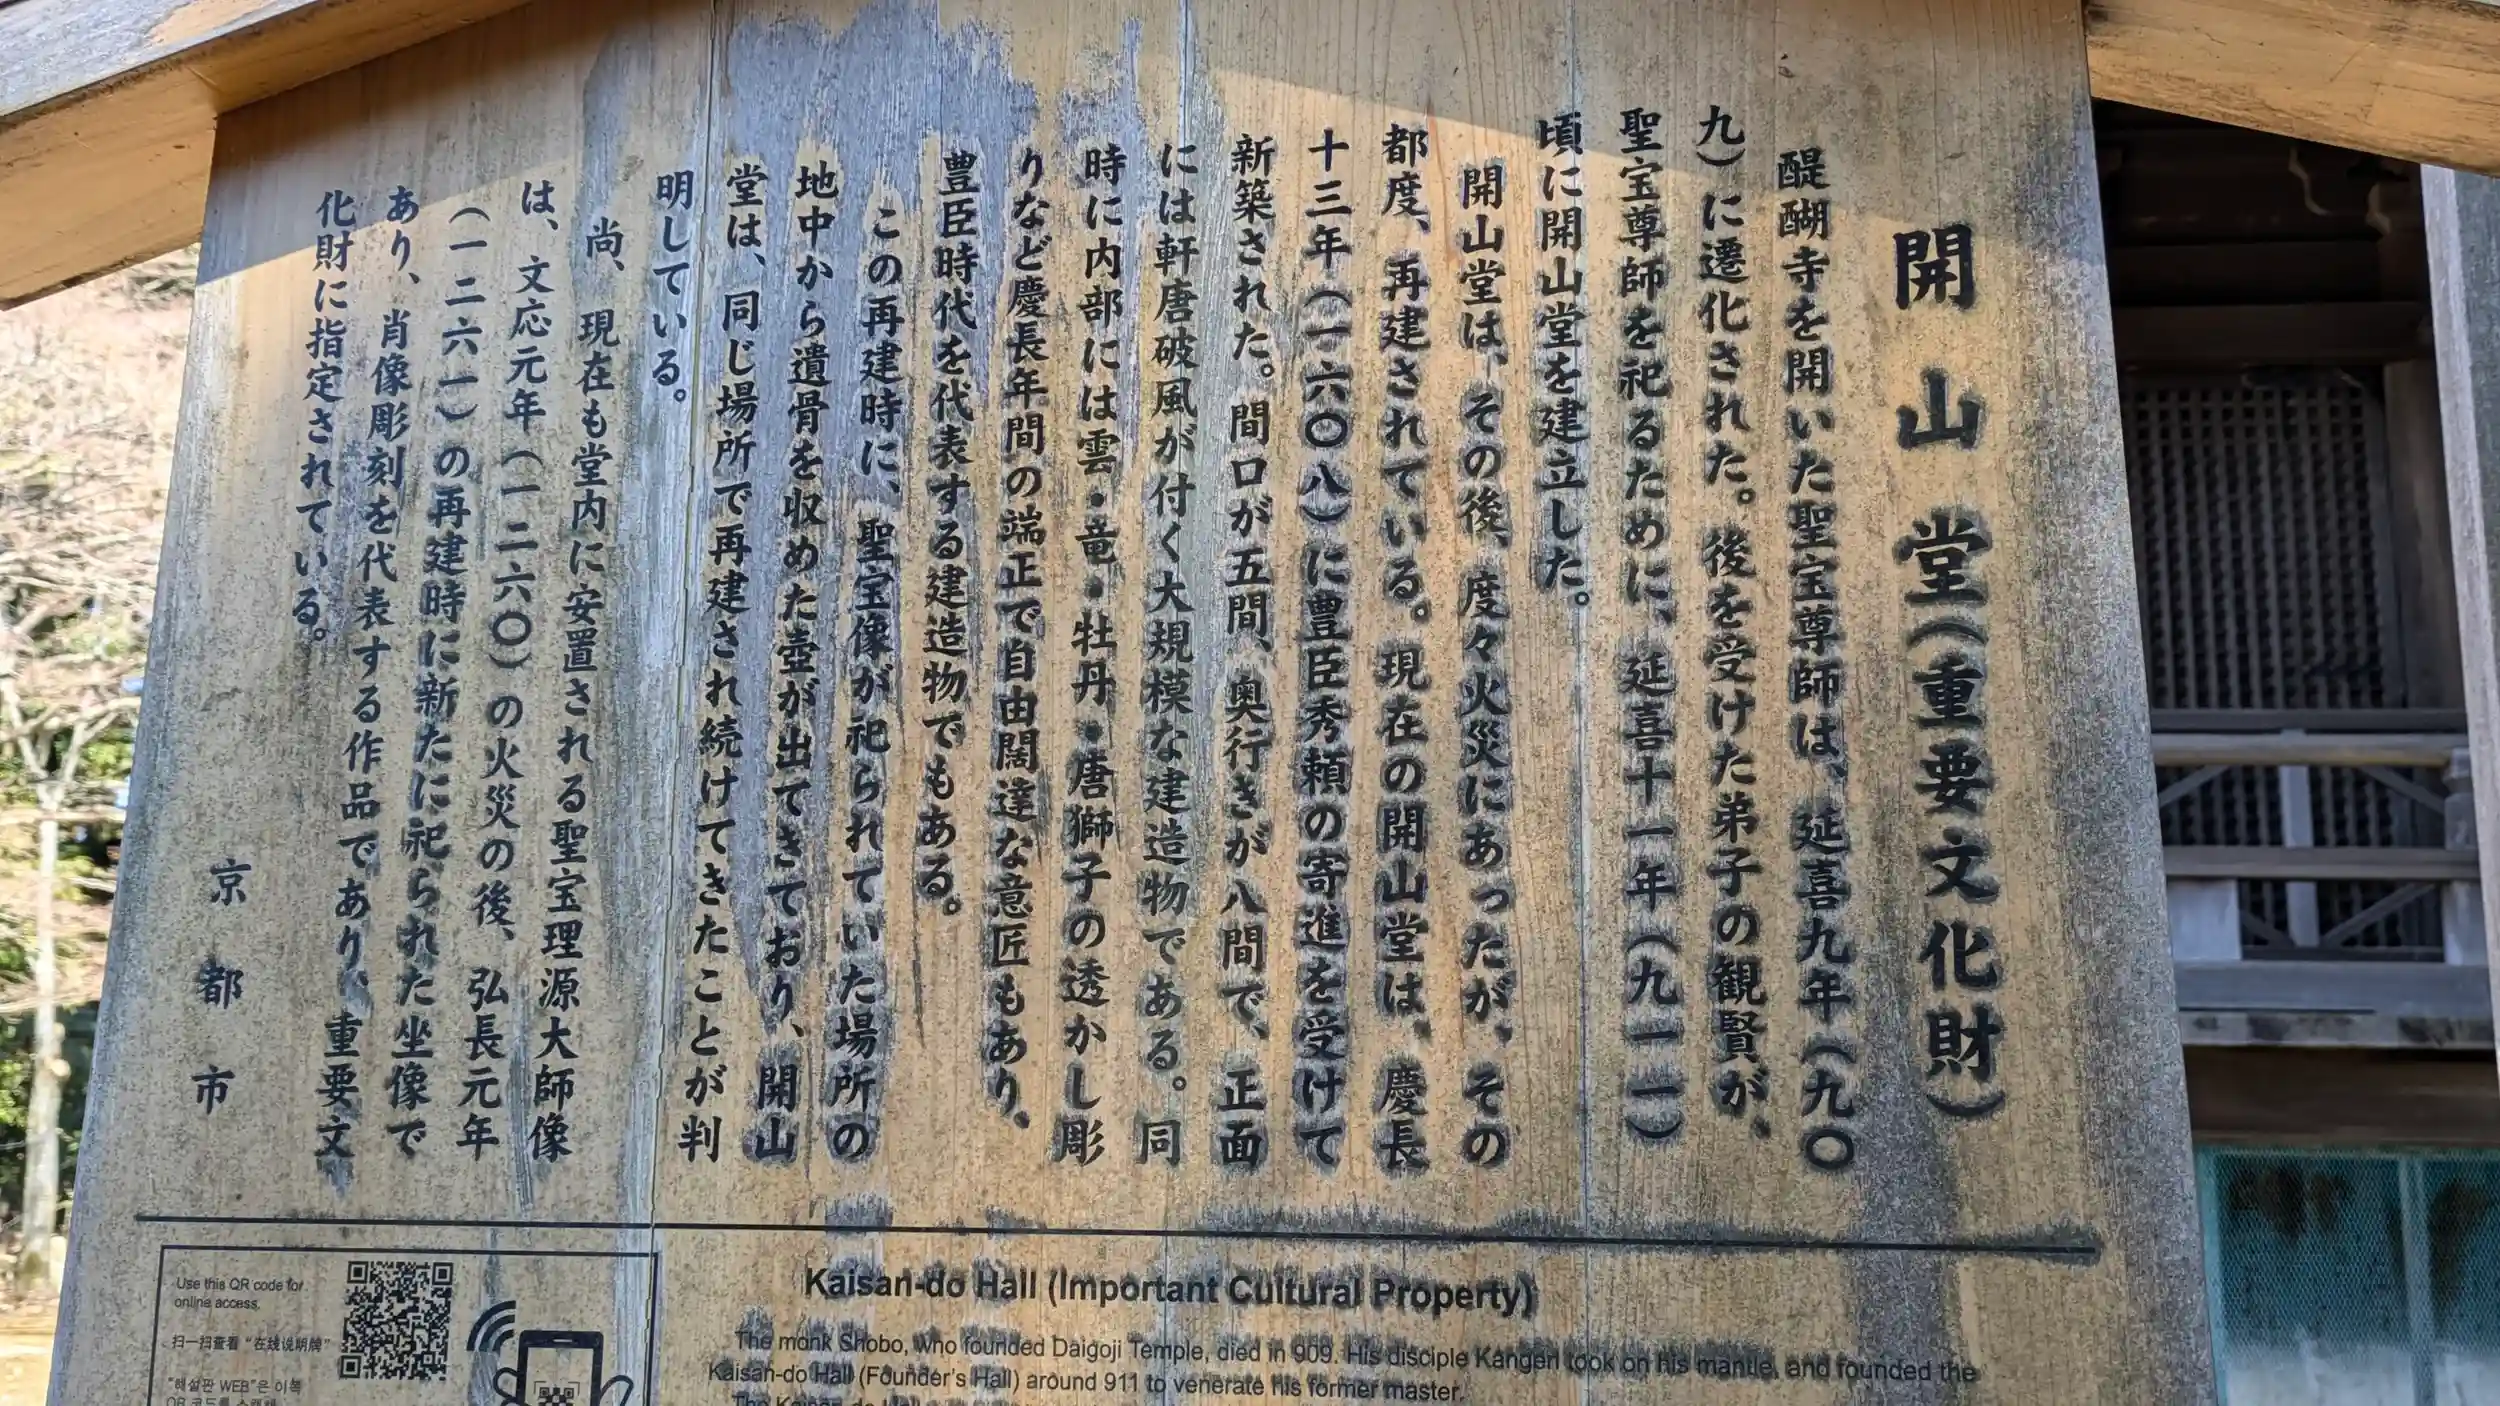 開山堂(重要文化財)
醍醐寺を開いた聖宝尊師は、延喜九年(九〇
九)に遷化された。後を受けた弟子の観賢が、
聖宝尊師を祀るために、延喜十一年(九一一)
頃に開山堂を建立した。
開山堂は、その後、度々火災にあったが、その
都度、再建されている。現在の開山堂は、慶長
十三年(一六〇八)に豊臣秀頼の寄進を受けて
新築された。間口が五間、奥行きが八間で、正面
には軒唐破風が付く大規模な建造物である。同
時に内部には雲・竜・牡丹・唐獅子の透かし彫
りなど慶長年間の端正で自由闊達な意匠もあり、
豊臣時代を代表する建造物でもある。
この再建時に、聖宝像が祀られていた場所の
地中から遺骨を収めた壺が出てきており、開山
堂は、同じ場所で再建され続けてきたことが判
明している。
尚、現在も堂内に安置される聖宝理源大師像
は、文応元年(一二六〇)の火災の後、弘長元年
(一二六一)の再建時に新たに祀られた坐像で
あり、肖像彫刻を代表する作品であり、重要文
化財に指定されている。
京都市
Use this QR code for
online access.
扫一扫查看“在线说明牌”
"해설판 WEB"은 이쪽
Kaisan-do Hall (Important Cultural Property)
The monk Shobo, who founded Daigoji Temple, died in 909. His disciple Kangen took on his mantle, and founded the
Kaisan-do Hall (Founder's Hall) around 911 to venerate his former master.
The Kaisan-do Hall